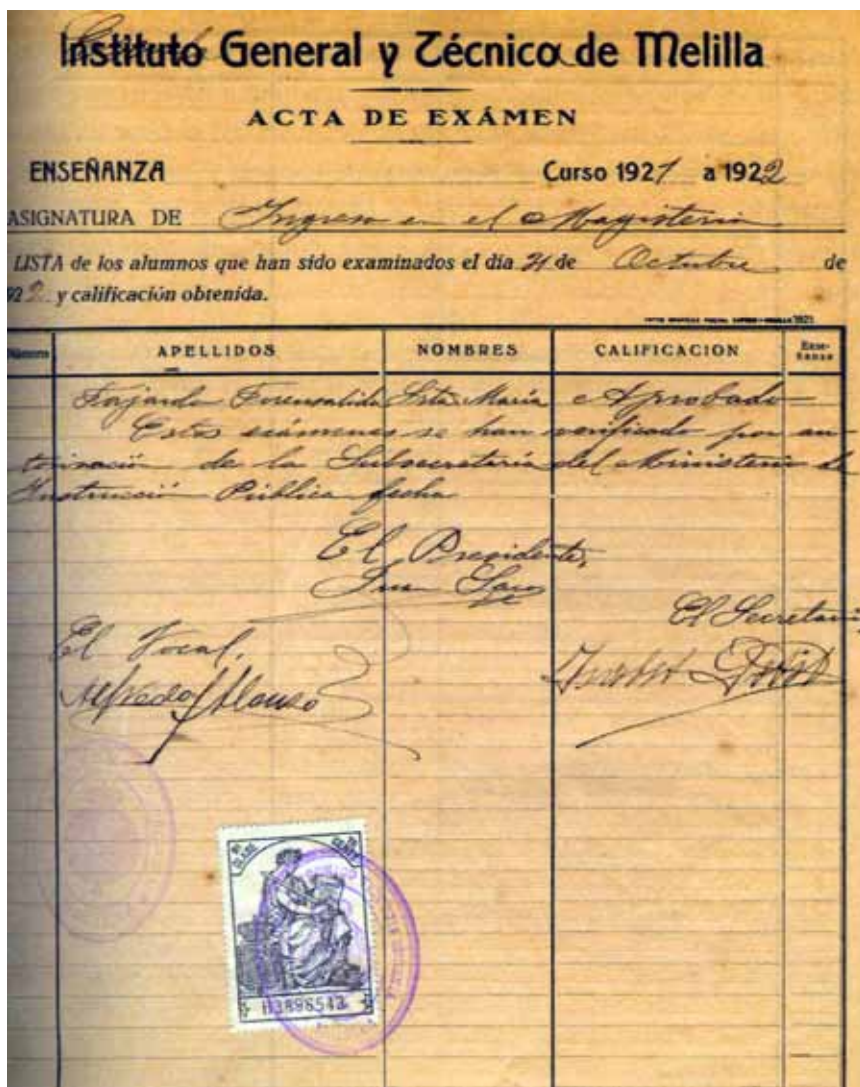 Escuela
Instituto General y Técnico de Melilla
ACTA DE EXÁMEN
ENSEÑANZA Curso 1921 a 1922
ASIGNATURA DE Ingreso en el Magisterio
LISTA de los alumnos que han sido examinados el día 21 de Octubre de
922 y calificación obtenida.
1921
Número APELLIDOS NOMBRES CALIFICACION Ense-
ñanza
Fajardo Fuensalida Srta. María Aprobado
Estos exámenes se han verificado por au
torización de la Subsecretaría del Ministerio de
Instrucció Pública fecha
El Presidente,
El Secretari
El Vocal,
Alfredo Alonso
CLASE